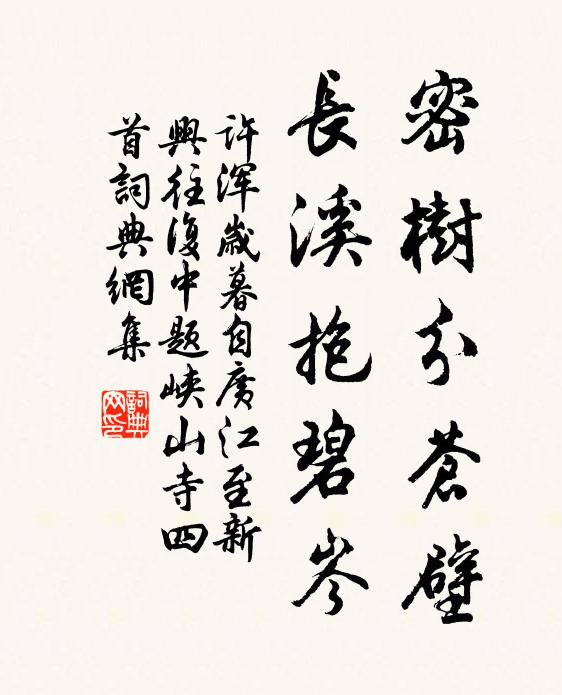 密樹分蒼壁
長溪抱碧岑
許渾歲暮自廣江至新
興往復中題峽山寺四
首詞典網集
詞典網印